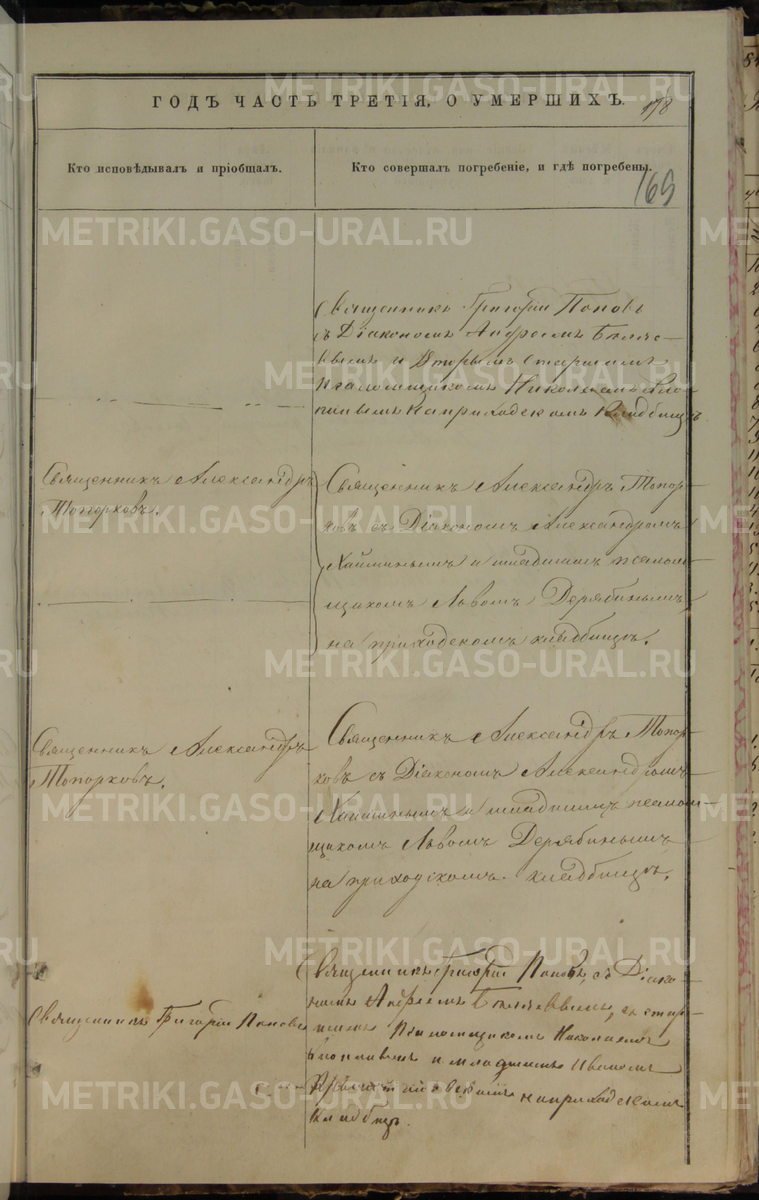 ГОДЪ ЧАСТЬ ТРЕТІЯ, О УМЕРШИХЪ.
178
Кто исповѣдывалъ и пріобщалъ.
Кто совершалъ погребеніе, и гдѣ погребены.
169
METRIKI.GASO-URAL.RU
Священникъ Григорій Поповъ
съ Діакономъ Андреемъ Беляе-
вымъ и Вторымъ старшимъ
Псаломщикомъ Николаемъ
на приходскомъ кладбищѣ
Священникъ Александръ
Топорковъ.
Священникъ Александръ Топор-
ковъ съ Діакономъ Александромъ
Хайминымъ и младшимъ псалом-
щикомъ Львомъ Дерябинымъ,
на приходскомъ кладбищѣ.
Священникъ Александръ
Топорковъ.
Священникъ Александръ Топор-
ковъ съ Діакономъ Александромъ
Хайминымъ и младшимъ псалом-
щикомъ Львомъ Дерябинымъ
на приходскомъ кладбищѣ.
Священникъ Григорій Поповъ
Священникъ Григорій Поповъ, съ Діако-
номъ Андреемъ Беляевымъ, съ стар-
шимъ Псаломщикомъ Николаемъ
и младшимъ Иваномъ
на приходскомъ
кладбищѣ.